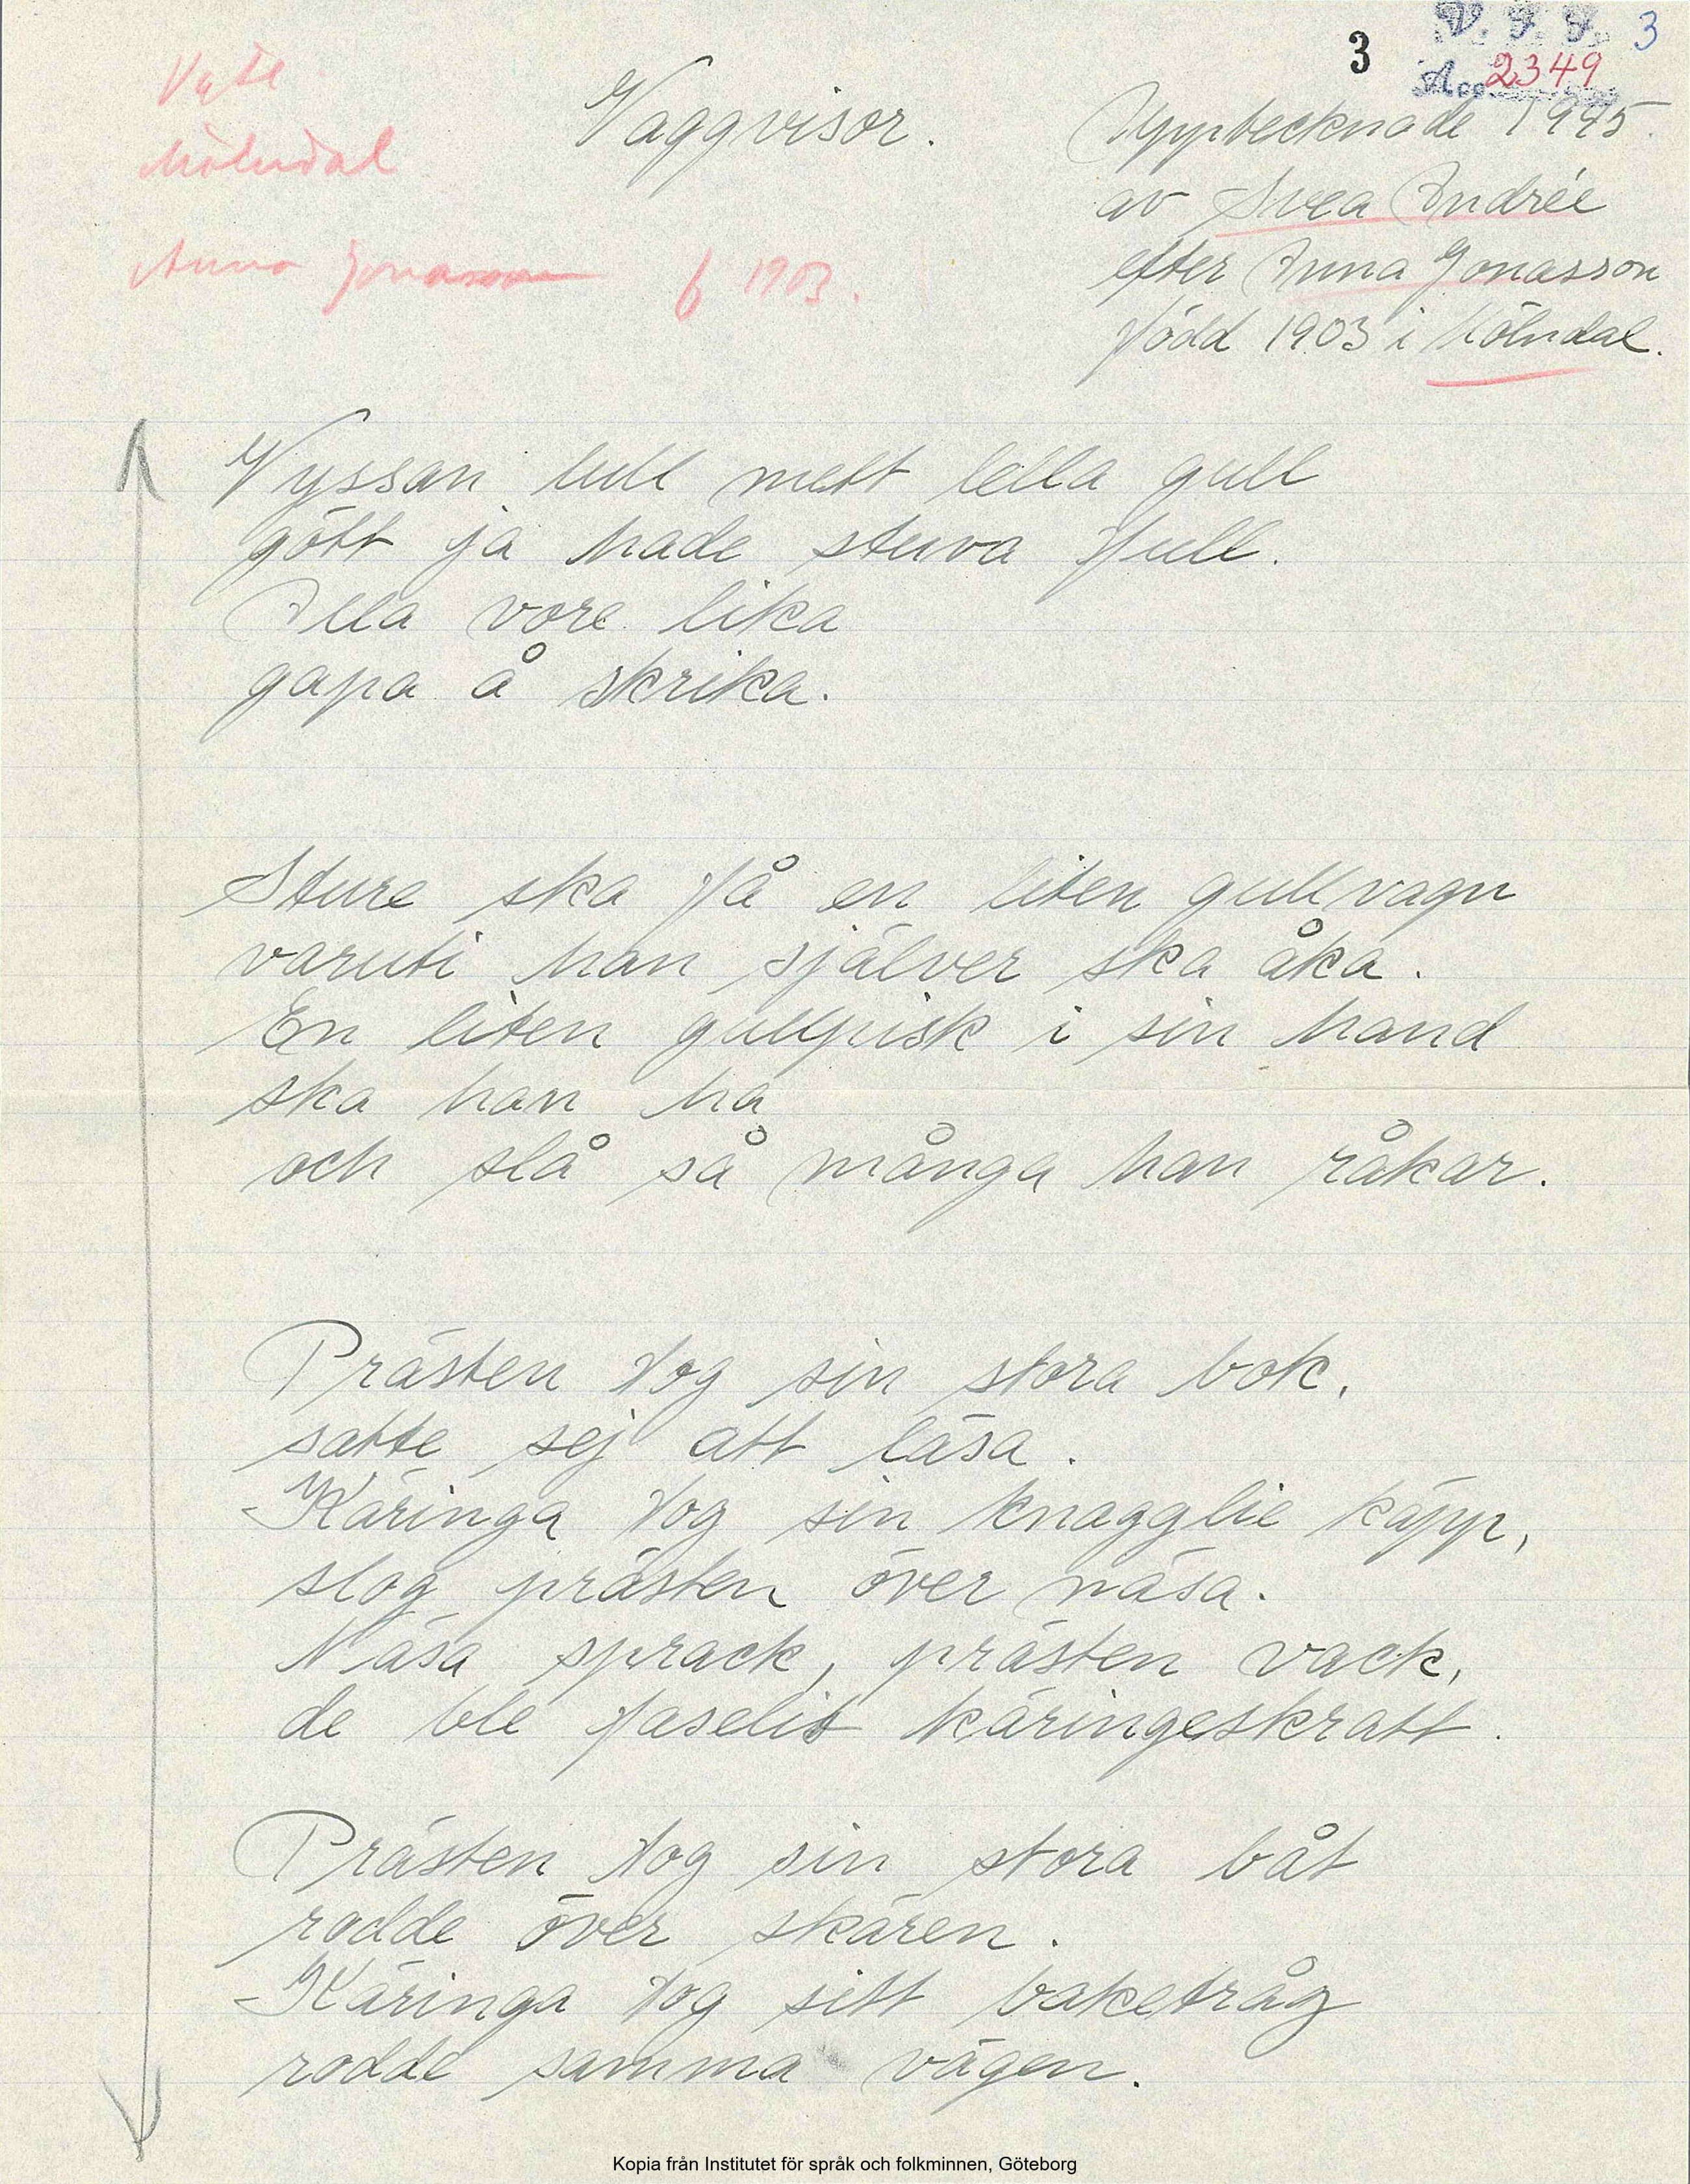 3
V. F. F. 3
Acc 2349
Vgtl
Mölndal
Anna Jonasson f 1903.
Vaggvisor.
Upptecknade 1945.
av Svea Andrée
efter Anna Jonasson
född 1903 i Mölndal.
Vyssan lull mett lella gull
gött ja hade stuva full.
Alla vore lika
gapa å skrika.
Sture ska få en liten gullvagn
varuti han själver ska åka.
En liten gullpisk i sin hand
ska han ha
och slå så många han råkar.
Prästen tog sin stora bok,
satte sej att läsa.
Käringa tog sin knagglie käpp,
slog prästen över näsa.
Näsa sprack, prästen vack,
de ble faselit käringeskratt.
Prästen tog sin stora båt
rodde över skären.
Käringa tog sitt baketråg
rodde samma vägen.
Kopia från Institutet för språk och folkminnen, Göteborg